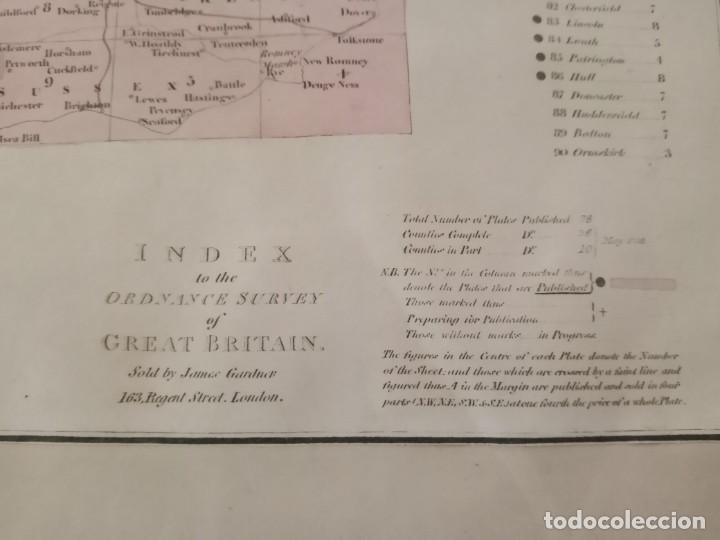 uildford 8 Dorking Reigate
Tunbridge Ashford Dover
Cranbrook
E. Grinstead Folkstone
Horsham W. Hoathly Tenterden
Ticehurst Romney
Petworth Cuckfield Marsh New Romney
Rye 4
9 5 Battle Denge Ness
U S S E X
ichester Lewes Hastings
Brighton Pevensey
Seaford
lsea Bill
82 Chesterfield 7
83 Lincoln 8
84 Louth 5
85 Patrington 4
86 Hull 8
87 Doncaster 7
88 Huddersfield 7
89 Bolton 7
90 Ormskirk 3
INDEX
to the
ORDNANCE SURVEY
of
GREAT BRITAIN.
Sold by James Gardner
163, Regent Street. London.
Total Number of Plates Published 78
Counties Complete Do.
Counties in Part Do. 20
N.B. The No. in the Column marked thus
denote the Plates that are Published
Those marked thus
Preparing for Publication +
Those without marks in Progress.
The figures in the Centre of each Plate denote the Number
of the Sheet: and those which are crossed by a faint line and
figured thus 4 in the Margin are published and sold in four
parts (N.W, N.E, S.W. & S.E.) at one fourth the price of a whole Plate.
todocoleccion.net